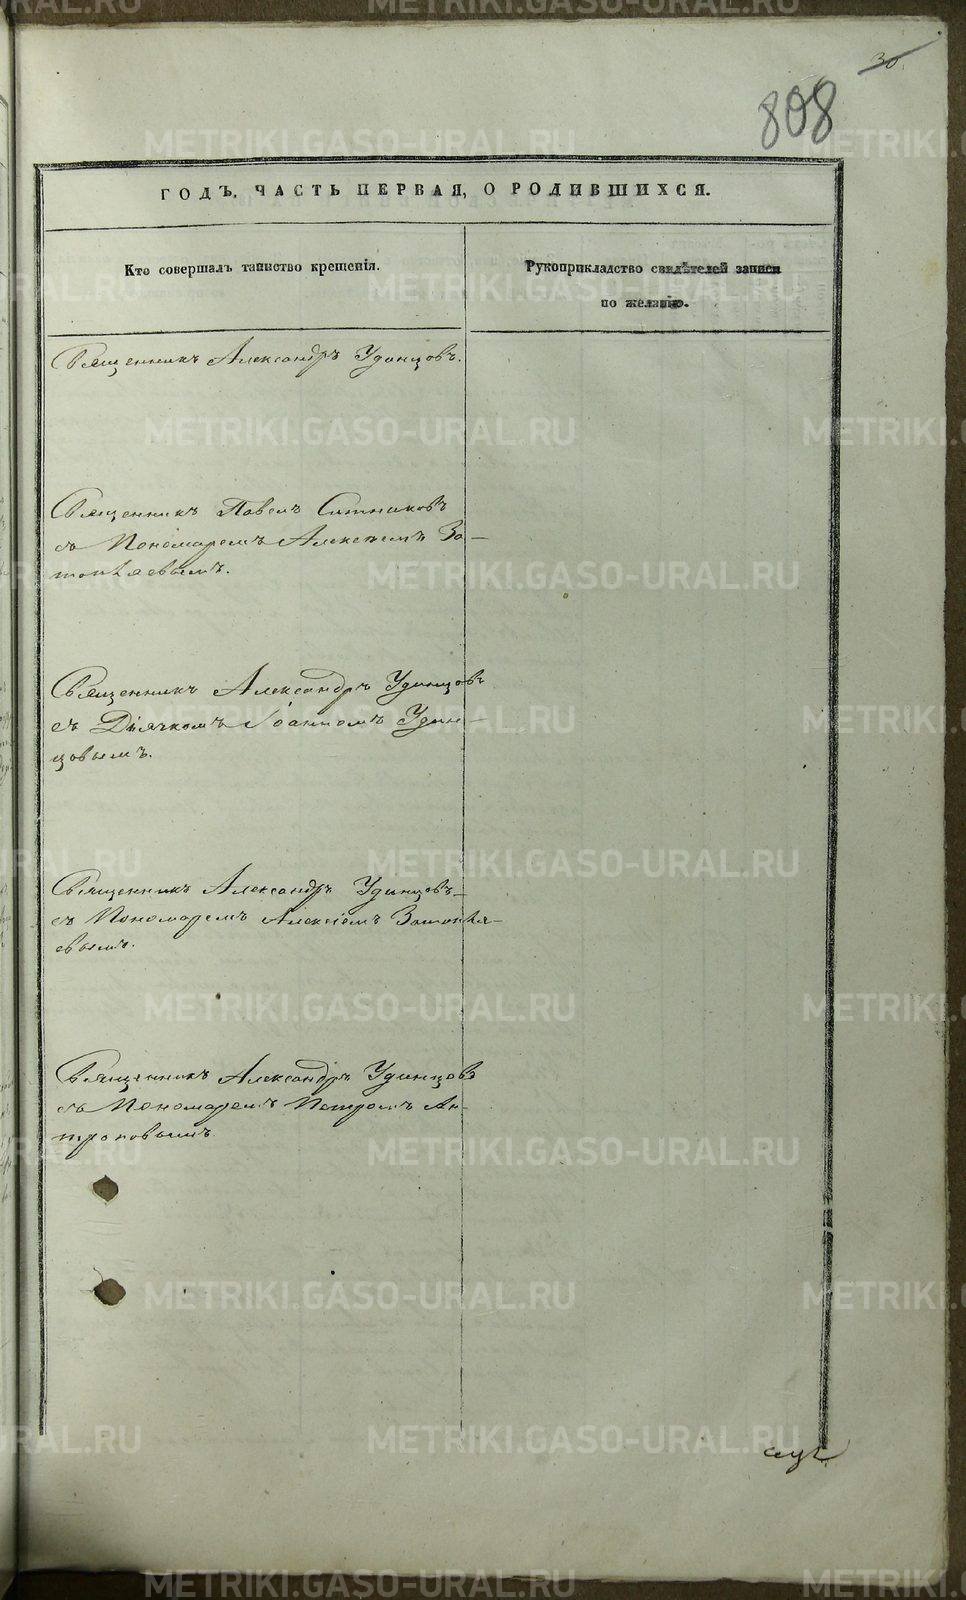 30
808
ГОДЪ, ЧАСТЬ ПЕРВАЯ, О РОДИВШИХСЯ.
Кто совершалъ таинство крещенія.
Рукоприкладство свидѣтелей записи
по желанію.
Священникъ Александръ Удинцовъ.
Священникъ Павелъ Ситниковъ
съ Пономаремъ Алексѣемъ За-
топляевымъ.
Священникъ Александръ Удинцовъ
съ Дьячкомъ Іоанномъ Удин-
цовымъ.
Священникъ Александръ Удинцовъ
съ Пономаремъ Алексіемъ Затопля-
евымъ.
Священникъ Александръ Удинцовъ
съ Пономаремъ Петромъ Ан-
троповымъ.
METRIKI.GASO-URAL.RU